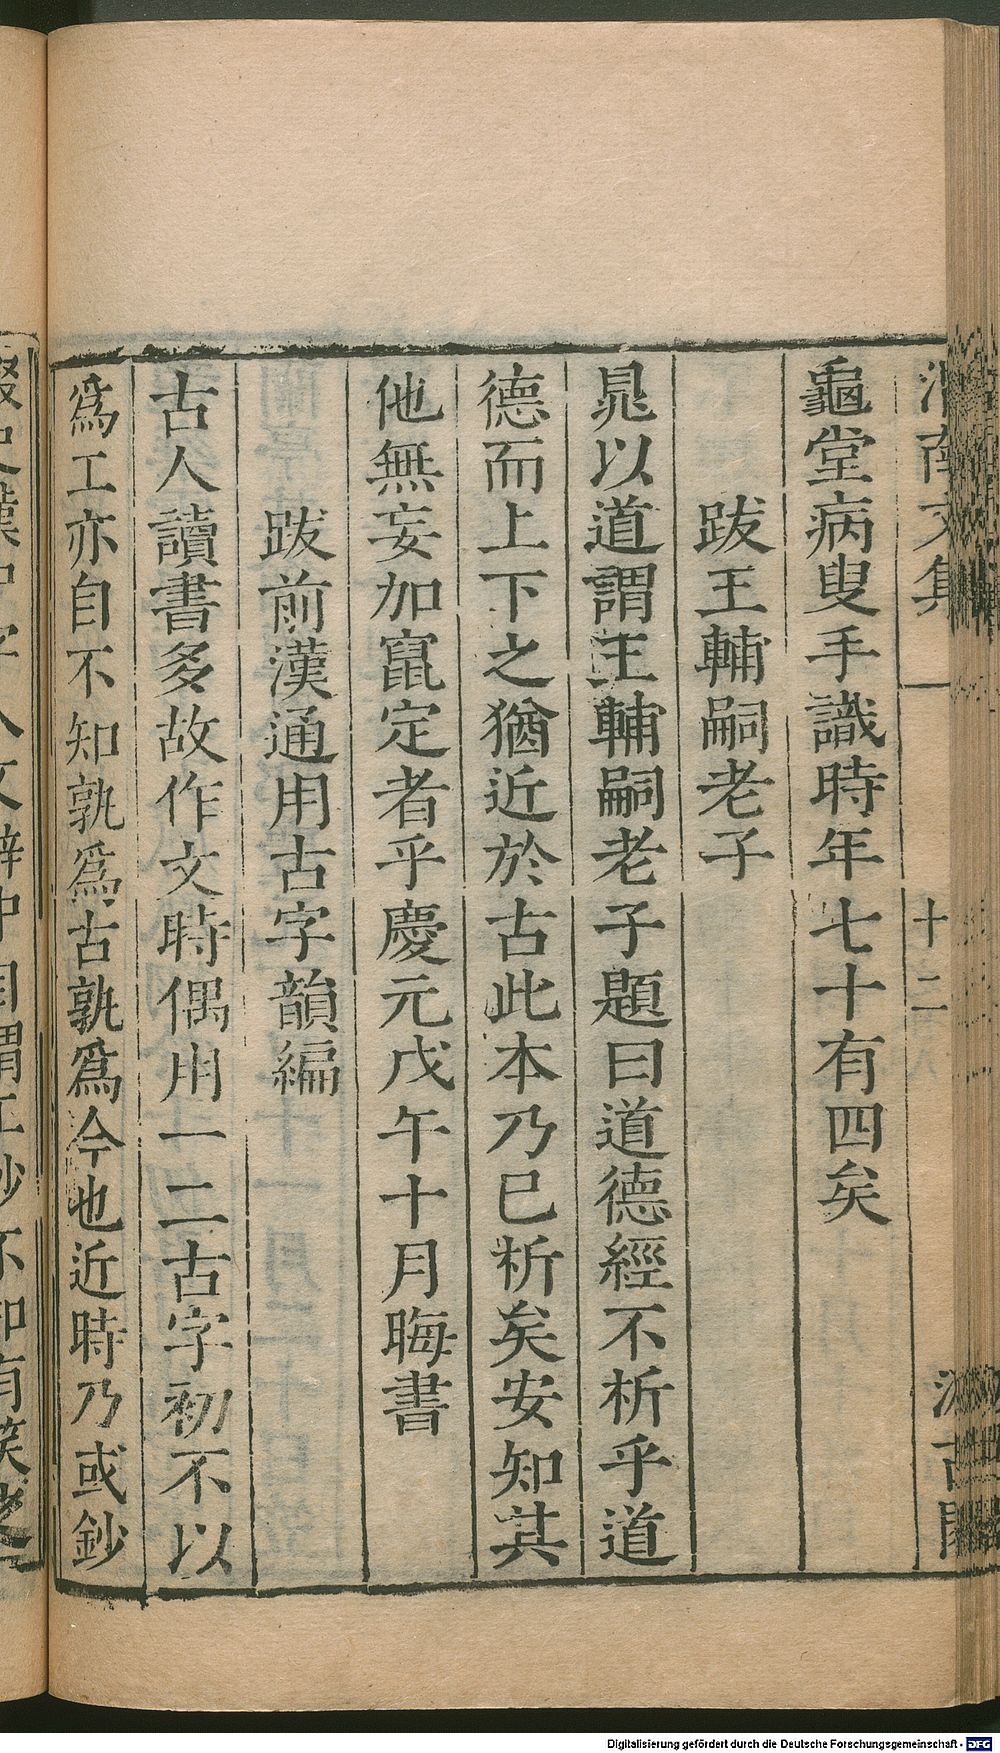 南文集 十二
龜堂病叟手識時年七十有四矣
跋王輔嗣老子
晁以道謂王輔嗣老子題曰道德經不析乎道
德而上下之猶近於古此本乃已析矣安知其
他無妄加竄定者乎慶元戊午十月晦書
跋前漢通用古字韻編
古人讀書多故作文時偶用一二古字初不以
爲工亦自不知孰爲古孰爲今也近時乃或鈔
Digitalisierung gefördert durch die Deutsche Forschungsgemeinschaft - DFG